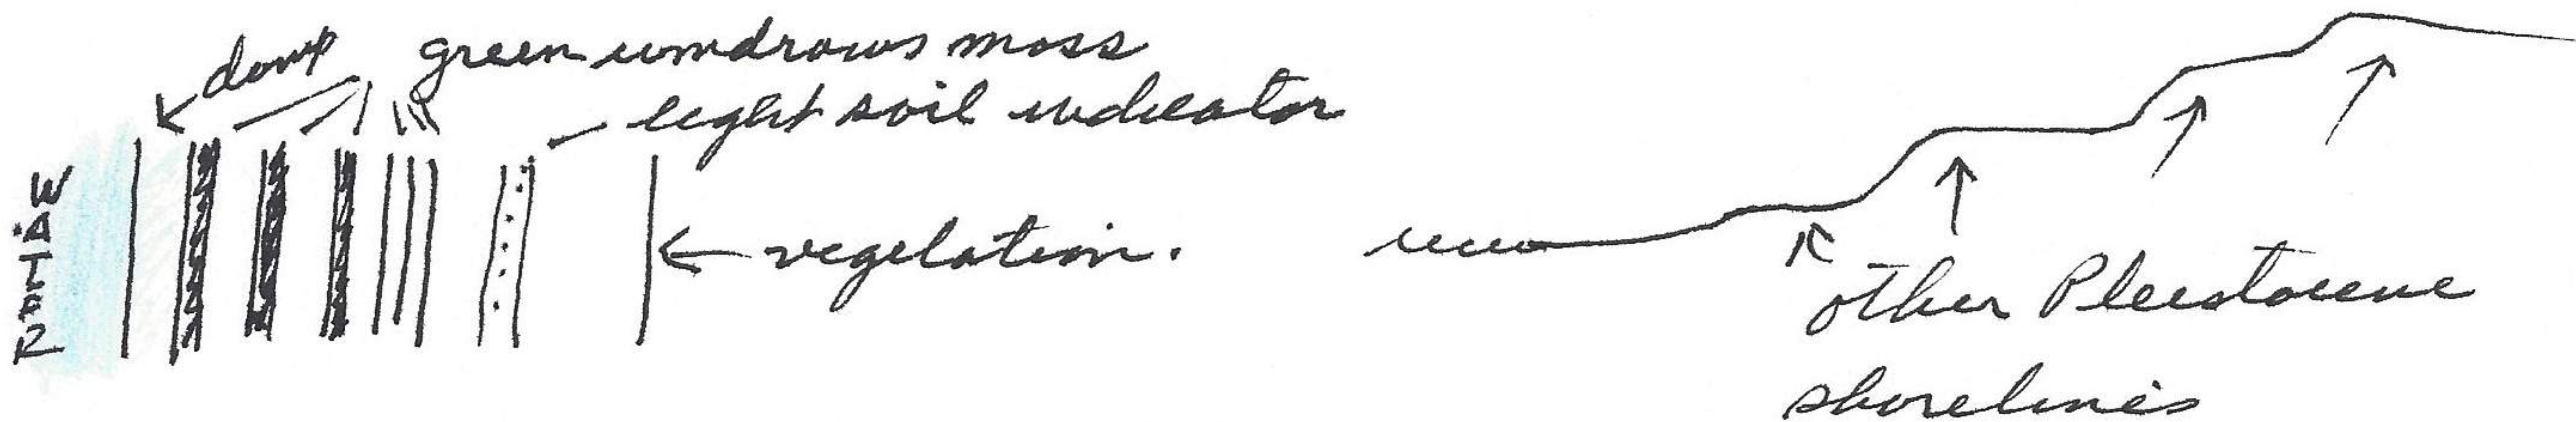 damp green windrows moss
light soil indicator
← vegetation.
other Pleistocene
shorelines